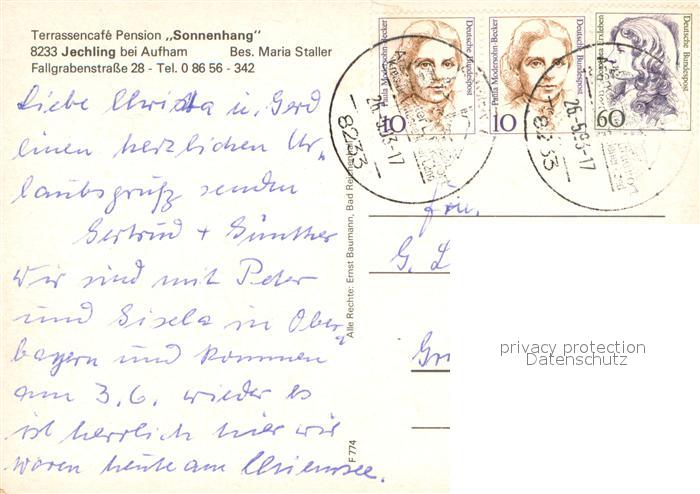 Terrassencafé Pension „Sonnenhang"
8233 Jechling bei Aufham Bes. Maria Staller
Fallgrabenstraße 28 - Tel. 0 86 56 - 342
Liebe Christa u. Gerd
einen herzlichen Ur„
laubsgruß senden
Gertrud + Günther
Wir sind mit Peter
und Gisela in Ober„
bayern und kommen
am 3.6. wieder es
ist herrlich hier wir
waren heute am Chiemsee.
Alle Rechte: Ernst Baumann, Bad Reichenhall
F 774
Paula Modersohn-Becker
Deutsche Bundespost
10
Paula Modersohn-Becker
Deutsche Bundespost
10
Deutsche Bundespost
60
8233
26.-5.93-17
8233
26.-5.93-17
G. L
privacy protection
Datenschutz